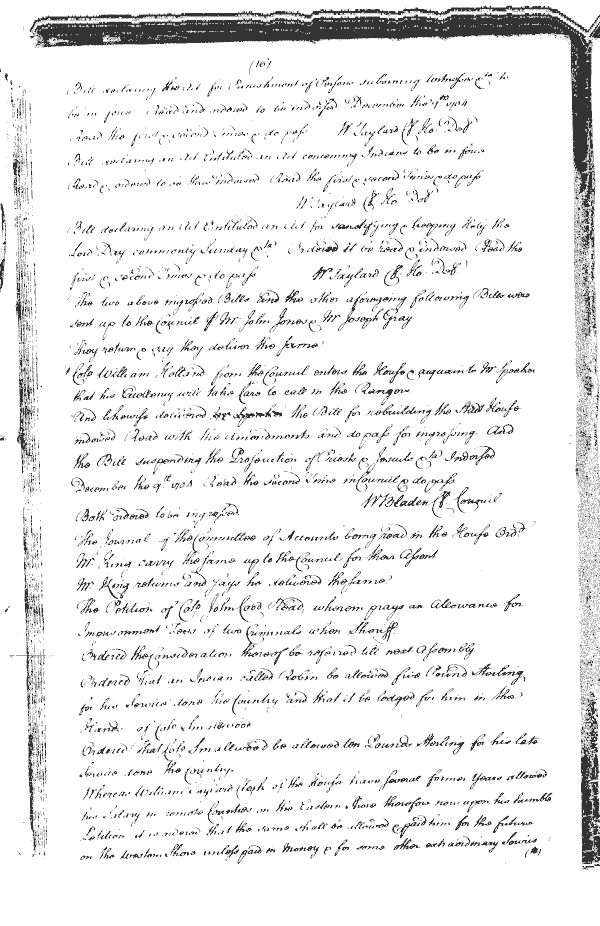 (16)
Bill declaring the Act for Punishment of Persons suborning Witnesses &ca to
be in force Read and ordered to be indorsed December the 9th 1704
Read the first & second Times & do pass W Taylard Cl Ho Del
Bill declaring an Act Entituled an Act concerning Indians to be in force
Read & ordered to be thus indorsed Read the first & second Times & do pass
W Taylard Cl Ho Del
Bill declaring an Act Entituled an Act for sanctifying & keeping Holy the
Lord Day commonly Sunday &ca Ordered it be read & indorsed Read the
first & second Times & do pass W Taylard Cl Ho Del
The two above ingrossed Bills and the other aforegoing following Bills were
sent up to the Council by Mr John Jones & Mr Joseph Gray
They return & say they deliver the same
Colo William Holland from the Council enters the House & acquants Mr Speaker
that his Excellency will take Care to call in the Rangers
And likewise delivered the Bill for rebuilding the Stadt House
indorsed Read with the Amendments and do pass for ingrossing. And
the Bill suspending the Prosecution of Priests & Jesuits &ca Indorsed
December the 9th 1704 Read the second Time in Council & do pass
W Bladen Cl Council
Both ordered to be ingrossed
The Journal of the Committee of Accounts being read in the House Ord
Mr King carry the same up to the Council for their Assent
Mr King returns and says he delivered the same
The Petition of Colo John Coode Read, wherein prays an Allowance for
Imprisonment Fees of two Criminals when Sheriff
Ordered the Consideration thereof be referred till next Assembly
Ordered that an Indian called Robin be allowed five Pound Sterling
for his Service done the Country and that it be lodged for him in the
Hands of Colo Smallwood
Ordered that Colo Smallwood be allowed ten Pounds Sterling for his late
Service done the Country.
Whereas William Taylard Clerk of the House have several former Years allowed
his Salary in remote Counties on the Eastern Shore therefore now upon his humble
Petition it is ordered that the same shall be allowed & paid him for the future
on the Western Shore unless paid in Money & for some other extraordinary Service